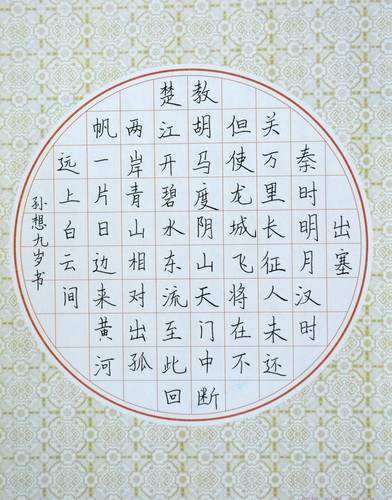 出塞
秦时明月汉时
关万里长征人未还
但使龙城飞将在不
教胡马度阴山天门中断
楚江开碧水东流至此回
两岸青山相对出孤
帆一片日边来黄河
远上白云间
孙想九岁书